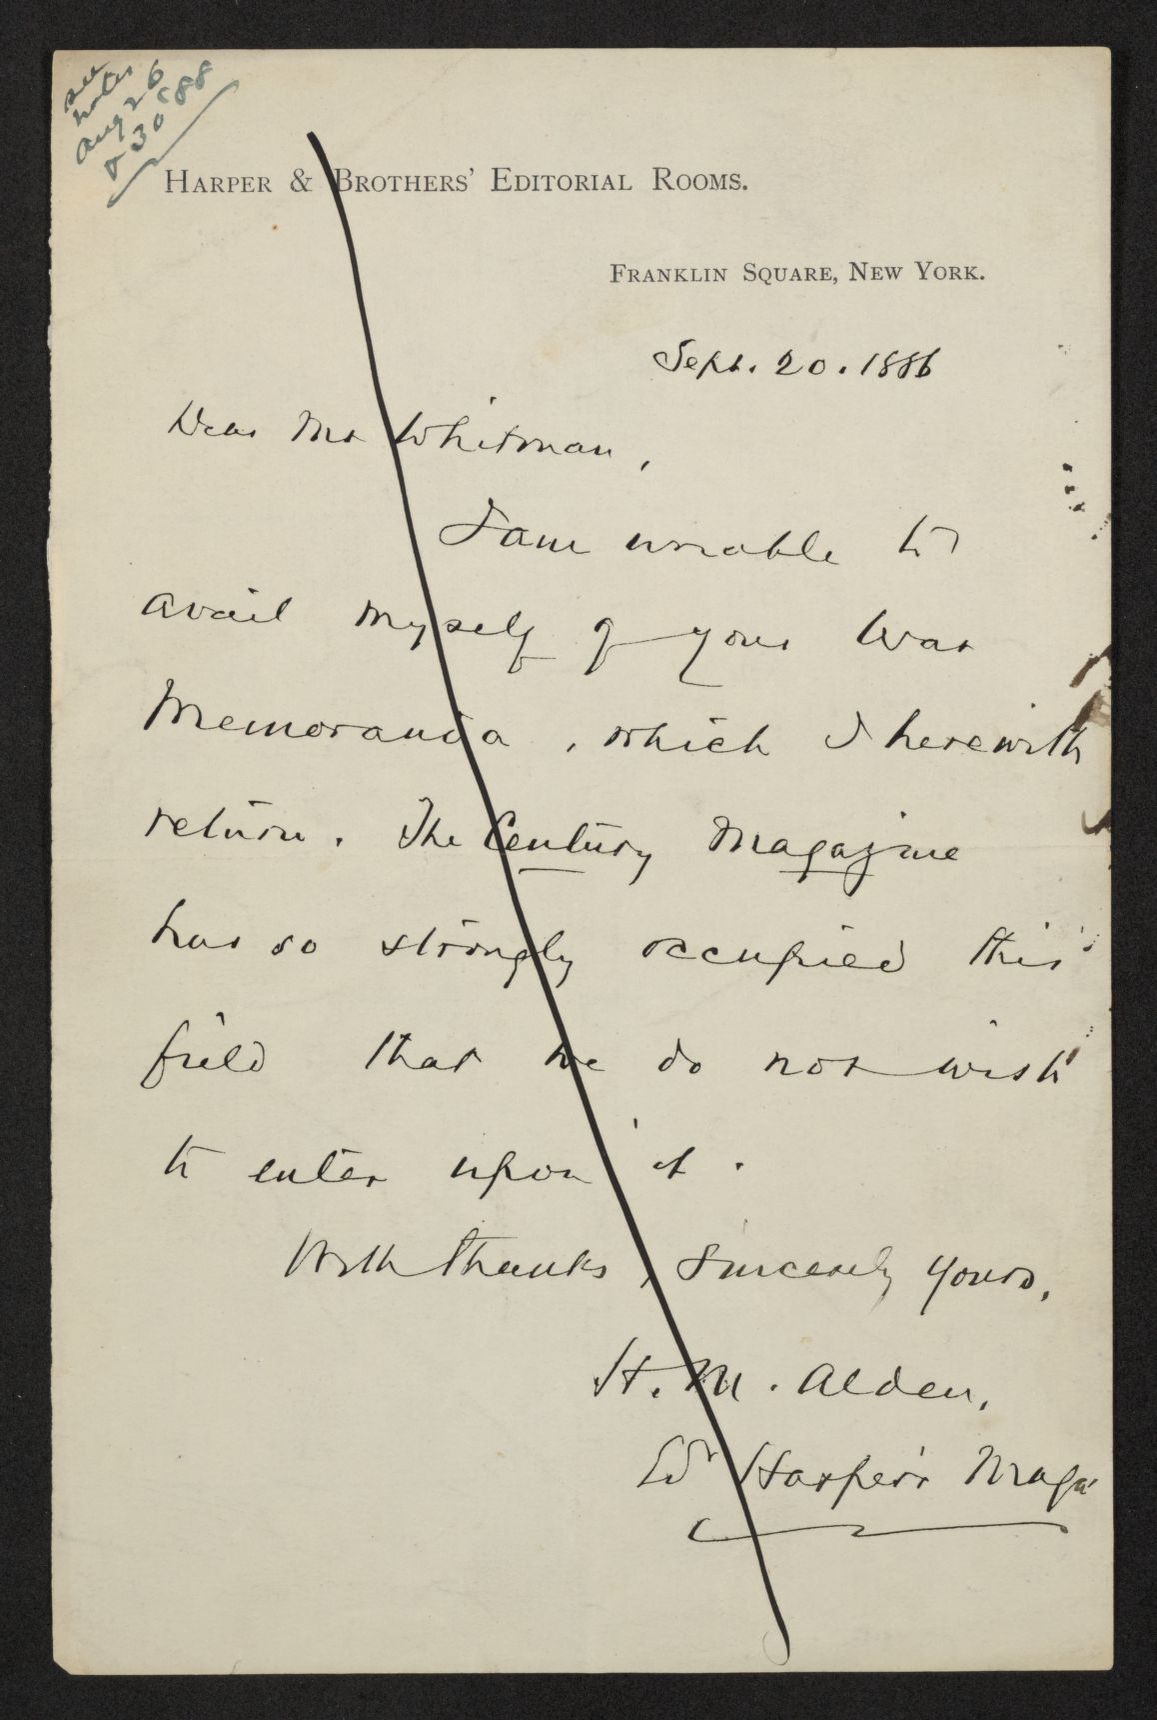 see
notes
Aug 26
& 30 '88
HARPER & BROTHERS' EDITORIAL ROOMS.
FRANKLIN SQUARE, NEW YORK.
Sept. 20. 1886
Dear Mr Whitman,
I am unable to
avail myself of your War
Memoranda, which I herewith
return. The Century Magazine
has so strongly occupied this
field that we do not wish
to enter upon it.
With thanks, Sincerely yours,
H. M. Alden,
Ed^r Harper's Maga